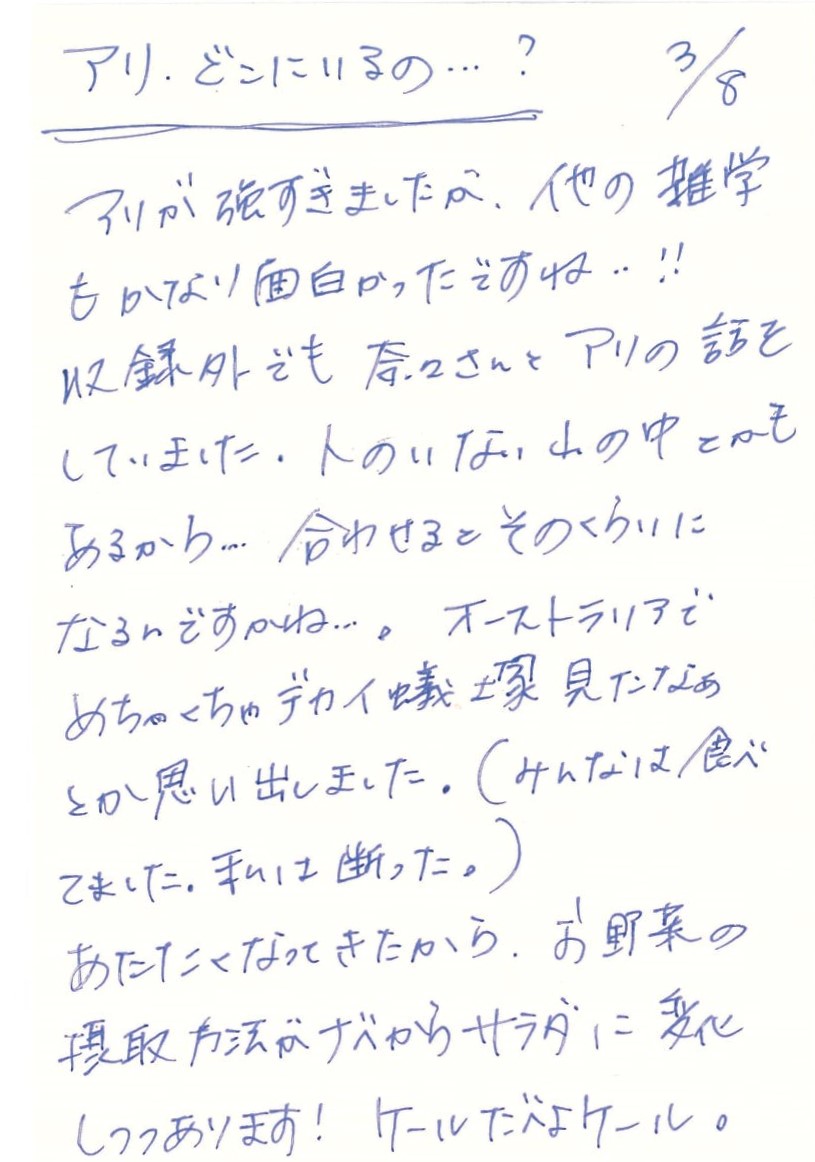 アリ.どこにいるの…？ 3/8
アリが強すぎましたが、他の雑学
もかなり面白かったですね‥!!
収録外でも奈々さんとアリの話を
していました.人のいない山の中とかも
あるから…合わせるとそのくらいに
なるんですかね…。オーストラリアで
めちゃくちゃデカイ蟻塚見たなぁ
とか思い出しました。(みんなは食べ
てました。私は断った。)
あたたくなってきたから、お野菜の
摂取方法がナベからサラダに変化
しつつあります!ケールだべよケール。